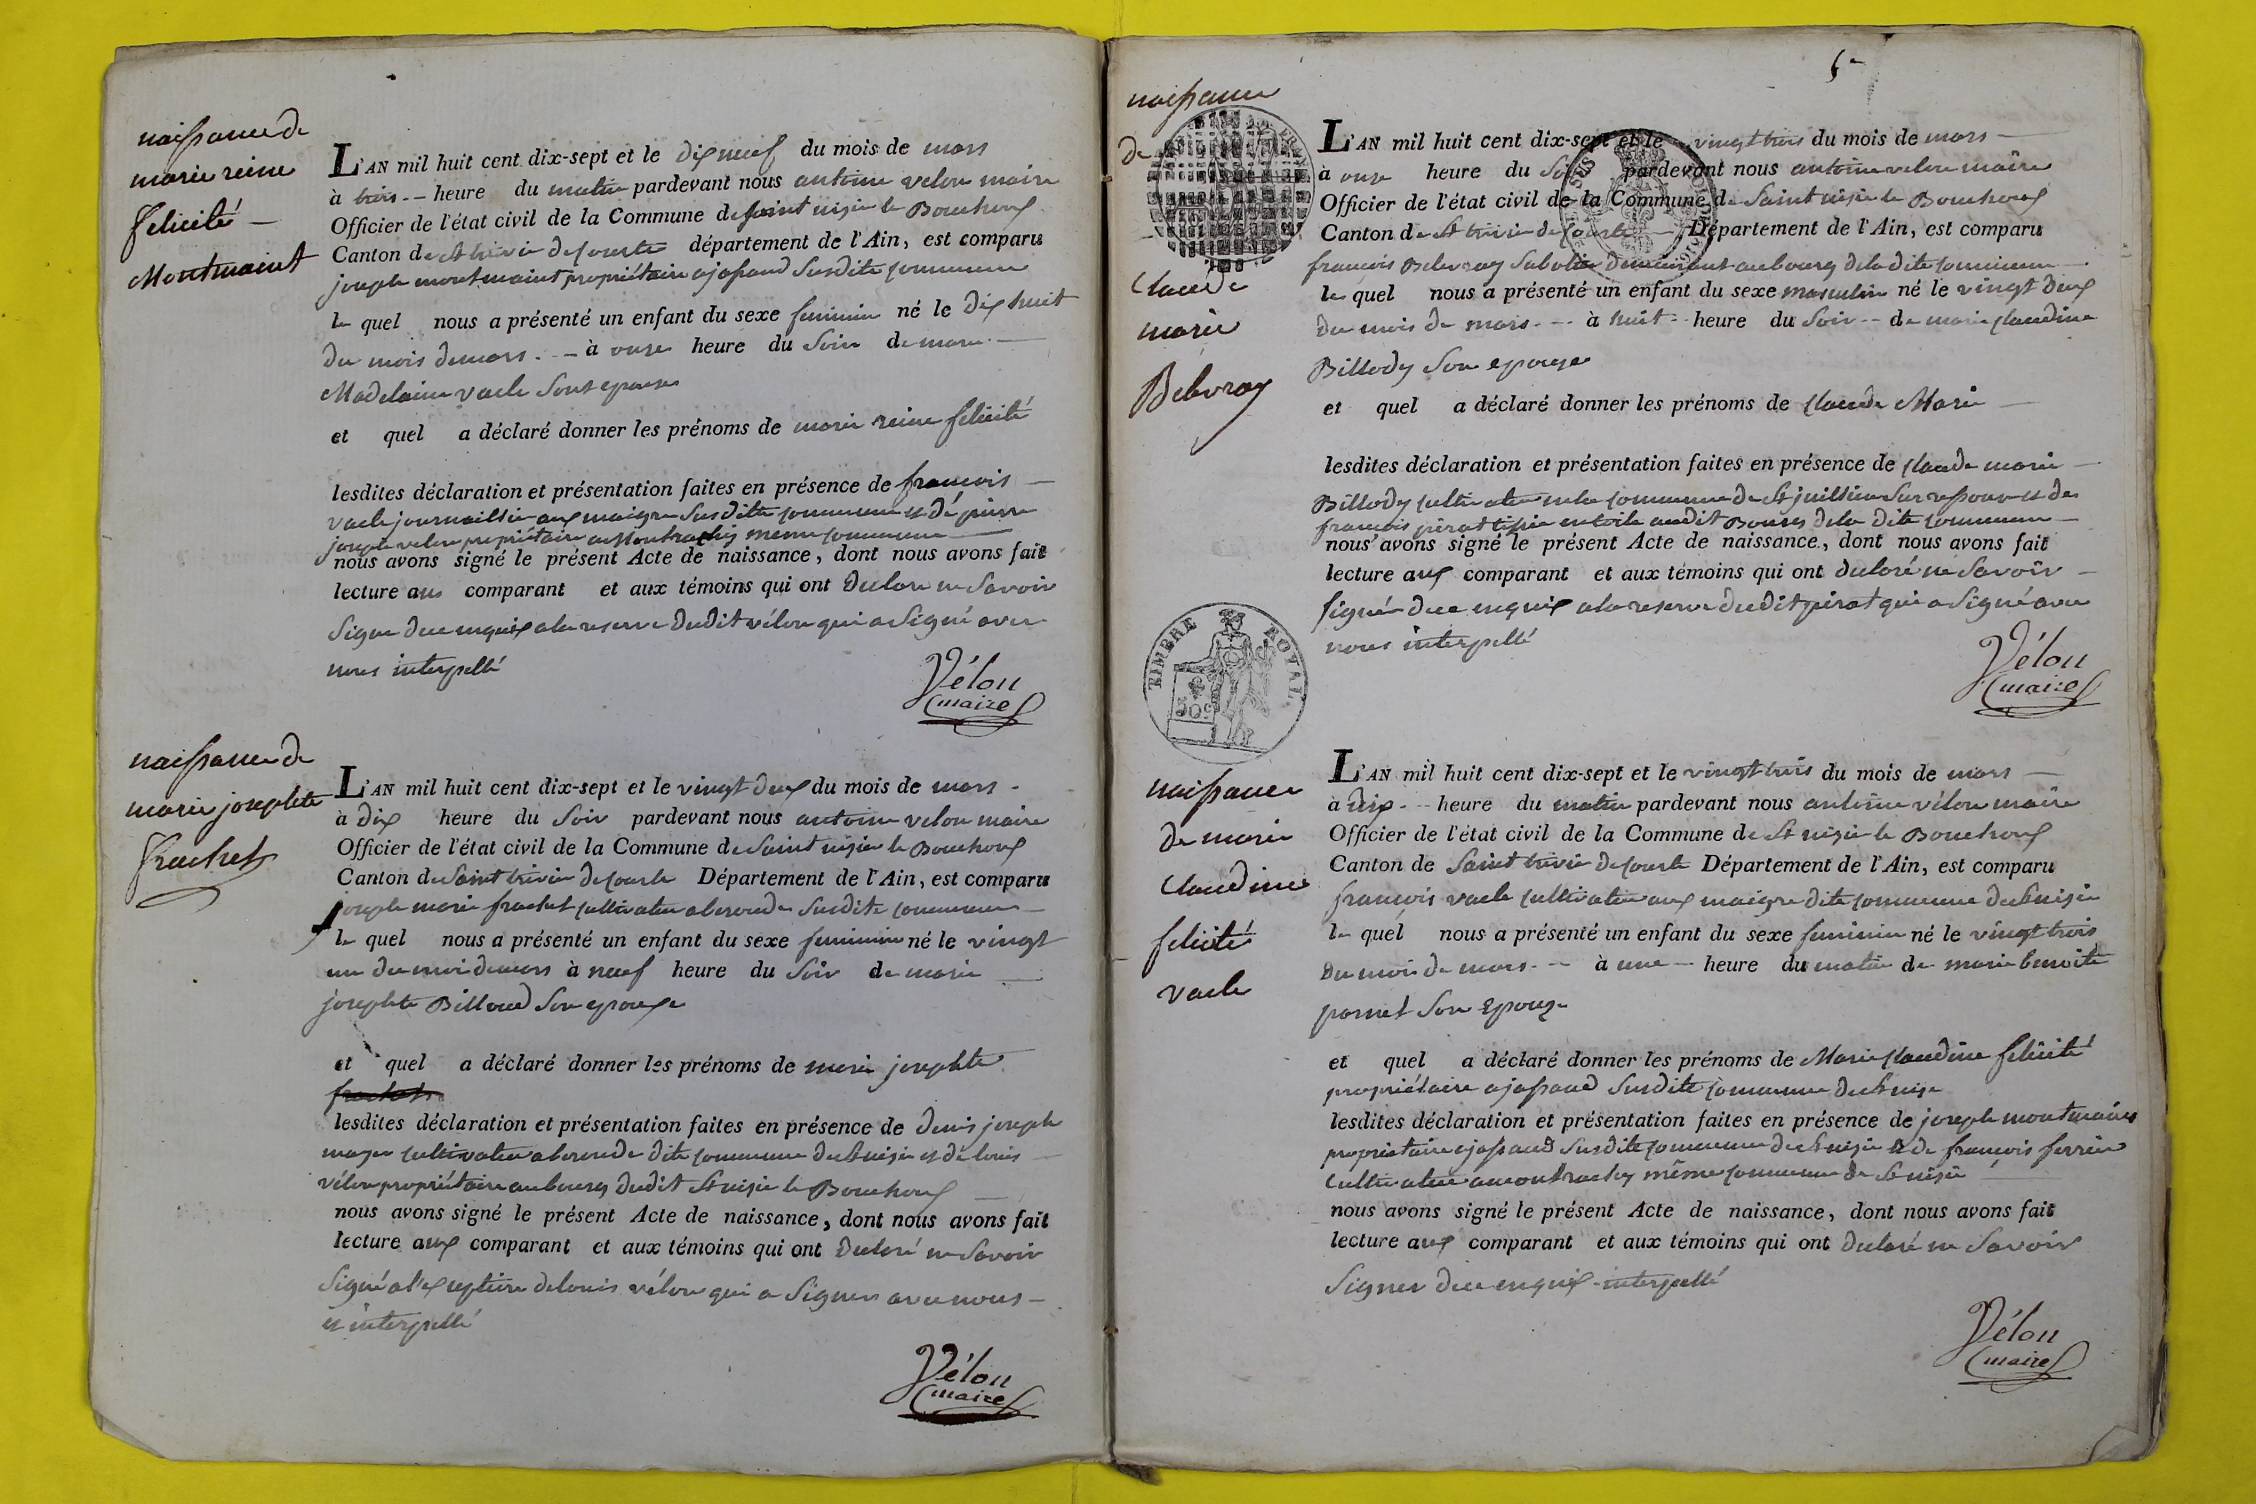 naissance de
marie reine
felicité
Montmaint
L'AN mil huit cent dix-sept et le dix neuf du mois de mars
à trois heure du matin pardevant nous antoine velon maire
Officier de l'état civil de la Commune de saint nizie le Bouchoux
Canton de St trivie de courte département de l'Ain, est comparu
joseph montmaint propriétaire a jassaud susdite commune
le quel nous a présenté un enfant du sexe feminin né le dix huit
du mois de mars à onze heure du soir de marie
Madelaine vacle sont epouse
et quel a déclaré donner les prénoms de marie reine felicité
lesdites déclaration et présentation faites en présence de francois
vacle journaillie aux maigre susdite commune et de pierre
joseph velon propriétaire au même commune
nous avons signé le présent Acte de naissance, dont nous avons fait
lecture aux comparant et aux témoins qui ont declare ne savoir
signe de ce enquis a la reserve dudit vélon qui a signé avec
nous interpellé
Vélon
maire
naissance de
marie josephte
frachet
L'AN mil huit cent dix-sept et le vingt deux du mois de mars
à dix heure du soir pardevant nous antoine velon maire
Officier de l'état civil de la Commune de saint nizie le Bouchoux
Canton de saint trivie de courte Département de l'Ain, est comparu
joseph marie frachet cultivateur susdite commune
le quel nous a présenté un enfant du sexe feminin né le vingt
un du moi de mars à neuf heure du soir de marie
josephte Billoud son epouse
et quel a déclaré donner les prénoms de marie josephte
frachet
lesdites déclaration et présentation faites en présence de denis joseph
cultivateur dite commune de St nizie et de louis
vélon propriétaire au bourg dudit St nizie le Bouchoux
nous avons signé le présent Acte de naissance, dont nous avons fait
lecture aux comparant et aux témoins qui ont declaré ne savoir
signé a l'exeptione de louis vélon qui a signer avec nous
et interpellé
Vélon
maire
naissance
de
claude
marie
Belevray
L'AN mil huit cent dix-sept et le vingt trois du mois de mars
à onze heure du soir pardevant nous antoine velon maire
Officier de l'état civil de la Commune de saint nizie le Bouchoux
Canton de St trivie de courte Département de l'Ain, est comparu
francois Belevray sabotier demeurant au bourg de la dite commune
le quel nous a présenté un enfant du sexe masculin né le vingt deux
du mois de mars à huit heure du soir de marie claudine
Billody son epouse
et quel a déclaré donner les prénoms de claude Marie
lesdites déclaration et présentation faites en présence de claude marie
Billody cultivateur commune de St juillien sur ressouze et de
francois pérat tissie en toile audit Bourg de la dite commune
nous avons signé le présent Acte de naissance, dont nous avons fait
lecture aux comparant et aux témoins qui ont declaré ne savoir
signer de ce enquis a la reserve dudit pérat qui a signé avec
nous interpellé
TIMBRE ROYAL
50c
Vélon
maire
naissance
de marie
claudine
felicité
vacle
L'AN mil huit cent dix-sept et le vingt trois du mois de mars
à dix heure du matin pardevant nous antoine vélon maire
Officier de l'état civil de la Commune de St nizie le Bouchoux
Canton de saint trivie de courte Département de l'Ain, est comparu
francois vacle cultivateur aux maigre dite commune de St nizie
le quel nous a présenté un enfant du sexe feminin né le vingt trois
du mois de mars à une heure du matin de marie benoite
son epouse
et quel a déclaré donner les prénoms de Marie claudine felicité
propriétaire a jassaud susdite commune de St nizie
lesdites déclaration et présentation faites en présence de joseph montmaint
propriétaire a jassaud susdite commune de St nizie et de francois
cultivateur même commune de St nizie
nous avons signé le présent Acte de naissance, dont nous avons fait
lecture aux comparant et aux témoins qui ont declaré ne savoir
signer de ce enquis interpellé
Vélon
maire